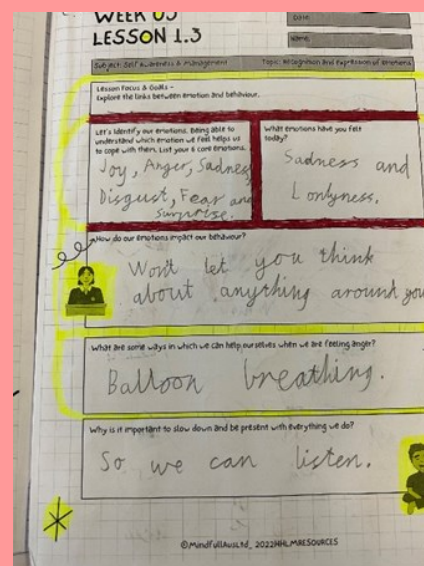 WEEK 05
LESSON 1.3
Date:
Name:
Subject: Self Awareness & Management
Topic: Recognition and Expression of Emotions
Lesson Focus & Goals -
Explore the links between emotion and behaviour.
Let's identify our emotions. Being able to
understand which emotion we feel helps us
to cope with them. List your 6 core emotions.
Joy, Anger, Sadness
Disgust, Fear and
Surprise.
What emotions have you felt
today?
Sadness and
Lonlyness.
How do our emotions impact our behaviour?
Won't let you think
about anything around you
What are some ways in which we can help ourselves when we are feeling anger?
Balloon breathing.
Why is it important to slow down and be present with everything we do?
So we can listen.
©MindfullAusLtd_2022HHLMRESOURCES